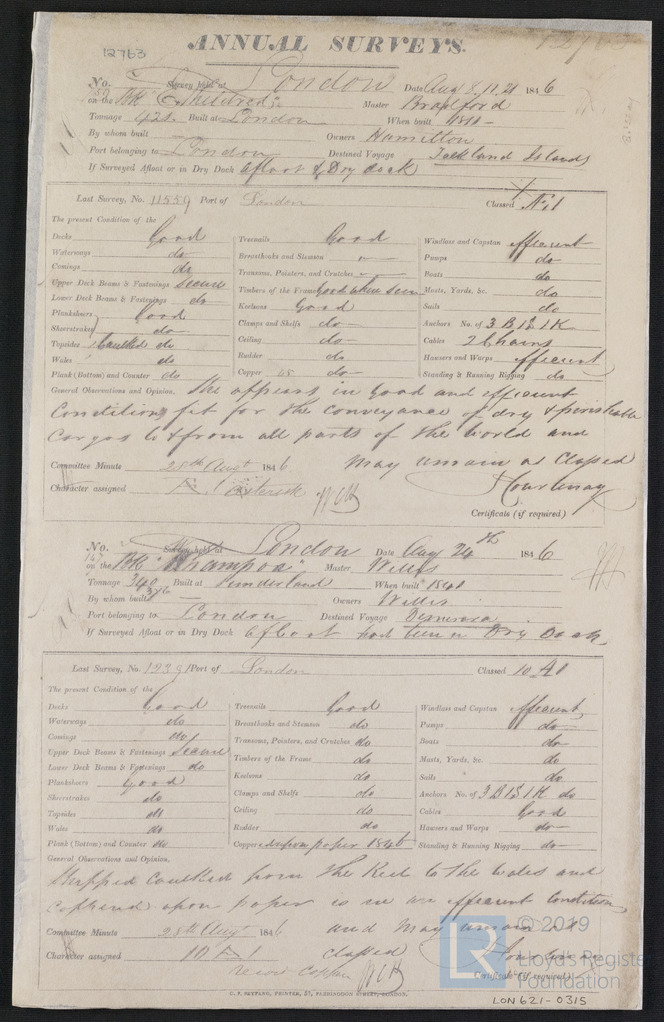 12763
ANNUAL SURVEYS.
No. Survey held at London Date Aug 8, 11, 21 1846
on the Bk Master Bradford
Tonnage 421 Built at London When built
By whom built Owners Hamilton
Port belonging to London Destined Voyage Falkland Islands
If Surveyed Afloat or in Dry Dock Afloat & Dry Dock
Last Survey, No. 11559 Port of London Classed Æ1
The present Condition of the
Decks Good
Waterways do
Comings do
Upper Deck Beams & Fastenings Secure
Lower Deck Beams & Fastenings do
Planksheers Good
Sheerstrakes do
Topsides Caulked do
Wales do
Plank (Bottom) and Counter do
Treenails Good
Breasthooks and Stemson
Transoms, Pointers, and Crutches
Timbers of the Frame Good where seen
Keelsons Good
Clamps and Shelfs do
Ceiling do
Rudder do
Copper 45 do
Windlass and Capstan efficient
Pumps do
Boats do
Masts, Yards, &c. do
Sails do
Anchors No. of 3 B 1 S 1 K
Cables 2 Chains
Hawsers and Warps efficient
Standing & Running Rigging do
General Observations and Opinion. She appears in Good and efficient
Condition & fit for the conveyance of dry & perishable
Cargos to & from all parts of the World and
Committee Minute 28th Augt 1846 may remain as Classed
Character assigned Asterisk Courtenay
Certificate (if required)
No. Survey held at London Date Aug 24th 1846
on the Bk "Whampoa" Master Willis
Tonnage 340 Built at Sunderland When built 1840
By whom built Owners Willis
Port belonging to London Destined Voyage Demerara
If Surveyed Afloat or in Dry Dock Afloat had been in Dry Dock
Last Survey, No. Port of London Classed 10 A1
The present Condition of the
Decks Good
Waterways do
Comings do
Upper Deck Beams & Fastenings Secure
Lower Deck Beams & Fastenings do
Planksheers Good
Sheerstrakes do
Topsides do
Wales do
Plank (Bottom) and Counter do
Treenails Good
Breasthooks and Stemson do
Transoms, Pointers, and Crutches do
Timbers of the Frame do
Keelsons do
Clamps and Shelfs do
Ceiling do
Rudder do
Coppered upon paper 1846
Windlass and Capstan efficient
Pumps do
Boats do
Masts, Yards, &c. do
Sails do
Anchors No. of 3 B 1 S 1 K do
Cables Good
Hawsers and Warps do
Standing & Running Rigging do
General Observations and Opinion.
Stripped caulked from the Keel to the Wales and
Coppered upon paper is in an efficient Condition
Committee Minute 28th Augt 1846 and may remain as
Character assigned 10 A 1 classed
Certificate (if required)
© 2019
Lloyd's Register
Foundation
LR
LON621-0315